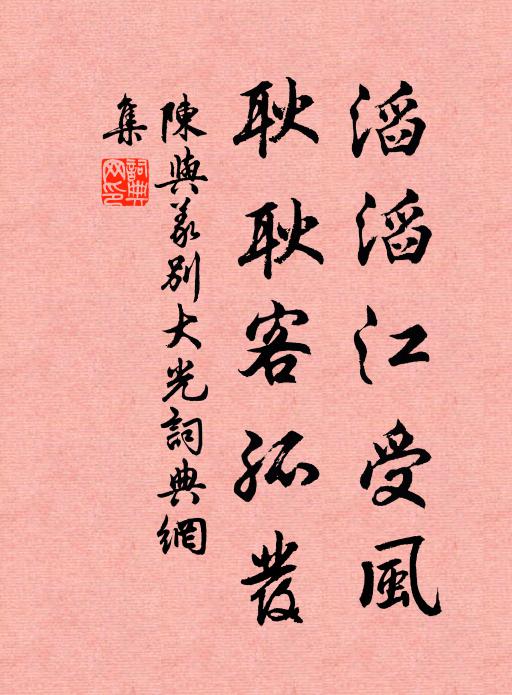 滔滔江受風
耿耿客孤發
陳與義別大光詞典網
集
詞典網印